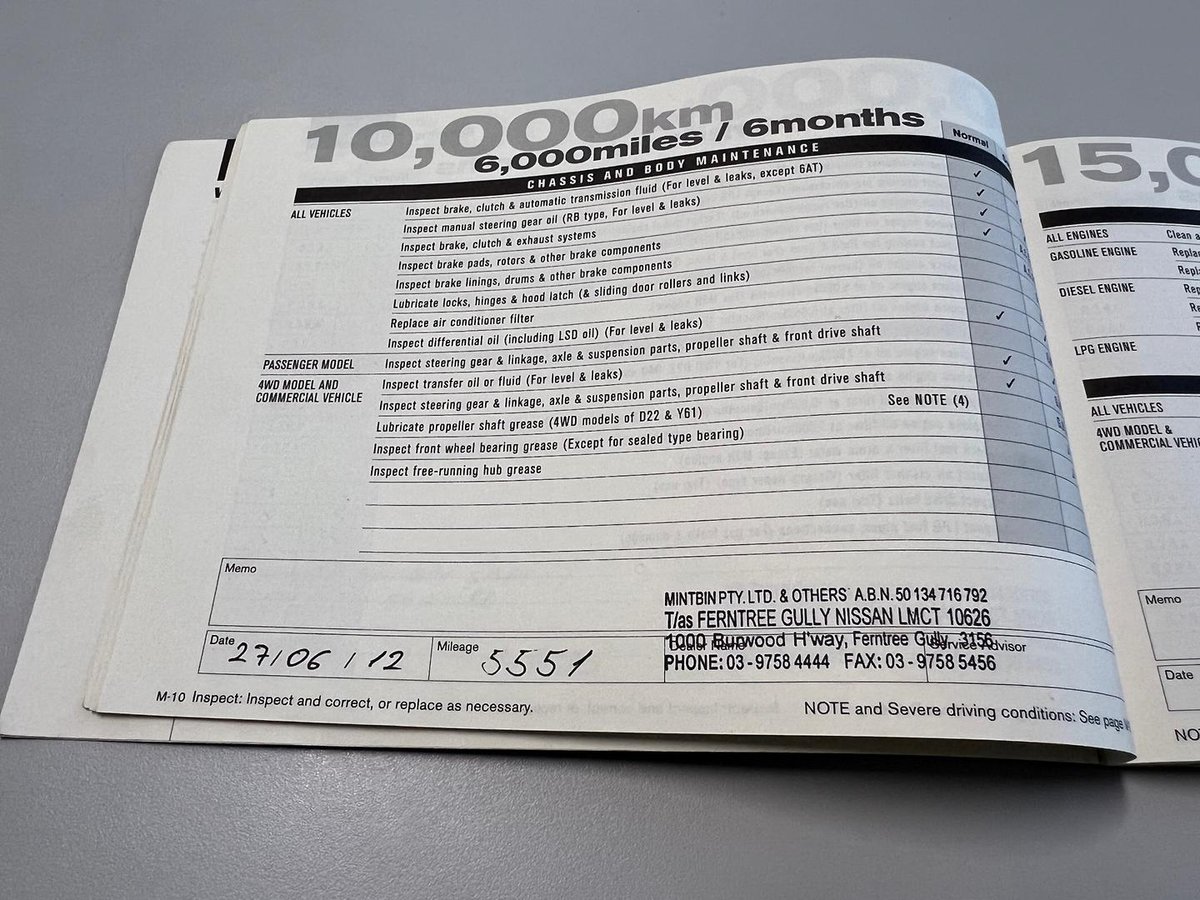 10,000km
6,000miles / 6months
CHASSIS AND BODY MAINTENANCE
Normal
ALL VEHICLES
Inspect brake, clutch & automatic transmission fluid (For level & leaks, except 6AT) ✓
Inspect manual steering gear oil (RB type, For level & leaks) ✓
Inspect brake, clutch & exhaust systems ✓
Inspect brake pads, rotors & other brake components ✓
Inspect brake linings, drums & other brake components
Lubricate locks, hinges & hood latch (& sliding door rollers and links)
Replace air conditioner filter
Inspect differential oil (including LSD oil) (For level & leaks) ✓
PASSENGER MODEL
Inspect steering gear & linkage, axle & suspension parts, propeller shaft & front drive shaft
4WD MODEL AND
COMMERCIAL VEHICLE
Inspect transfer oil or fluid (For level & leaks) ✓
Inspect steering gear & linkage, axle & suspension parts, propeller shaft & front drive shaft ✓
Lubricate propeller shaft grease (4WD models of D22 & Y61) See NOTE (4)
Inspect front wheel bearing grease (Except for sealed type bearing)
Inspect free-running hub grease
Memo
MINTBIN PTY. LTD. & OTHERS A.B.N. 50 134 716 792
T/as FERNTREE GULLY NISSAN LMCT 10626
1000 Burwood H'way, Ferntree Gully, 3156
PHONE: 03 - 9758 4444 FAX: 03 - 9758 5456
Date 27/06/12
Mileage 5551
Dealer Name
Service Advisor
M-10 Inspect: Inspect and correct, or replace as necessary.
NOTE and Severe driving conditions: See page
15,0
ALL ENGINES
Clean a
GASOLINE ENGINE
Repla
Repl
DIESEL ENGINE
Rep
Re
LPG ENGINE
ALL VEHICLES
4WD MODEL &
COMMERCIAL VEHIC
Memo
Date
NO